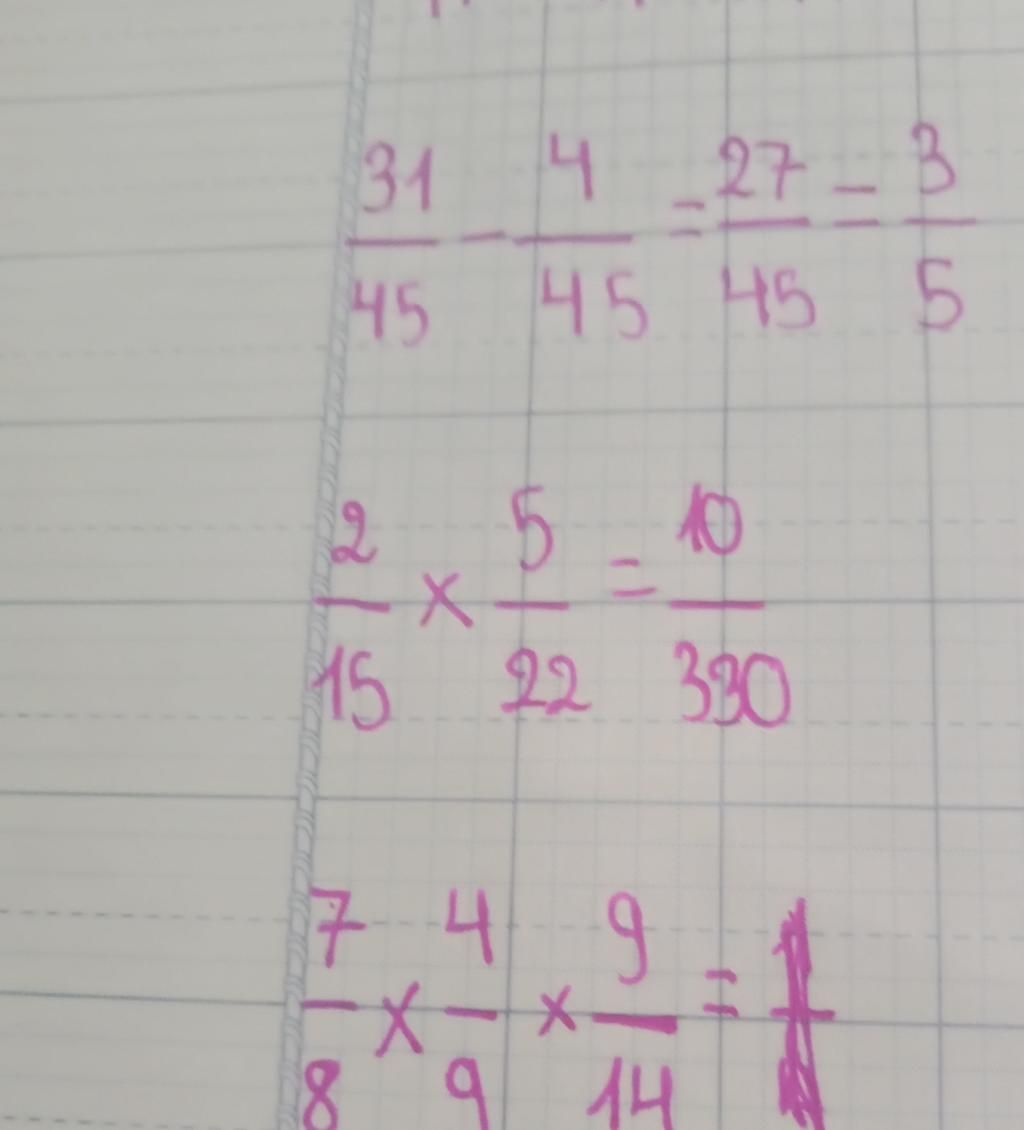 31/45 - 4/45 = 27/45 = 3/5
2/15 × 5/22 = 10/330
7/8 × 4/9 × 9/14 =